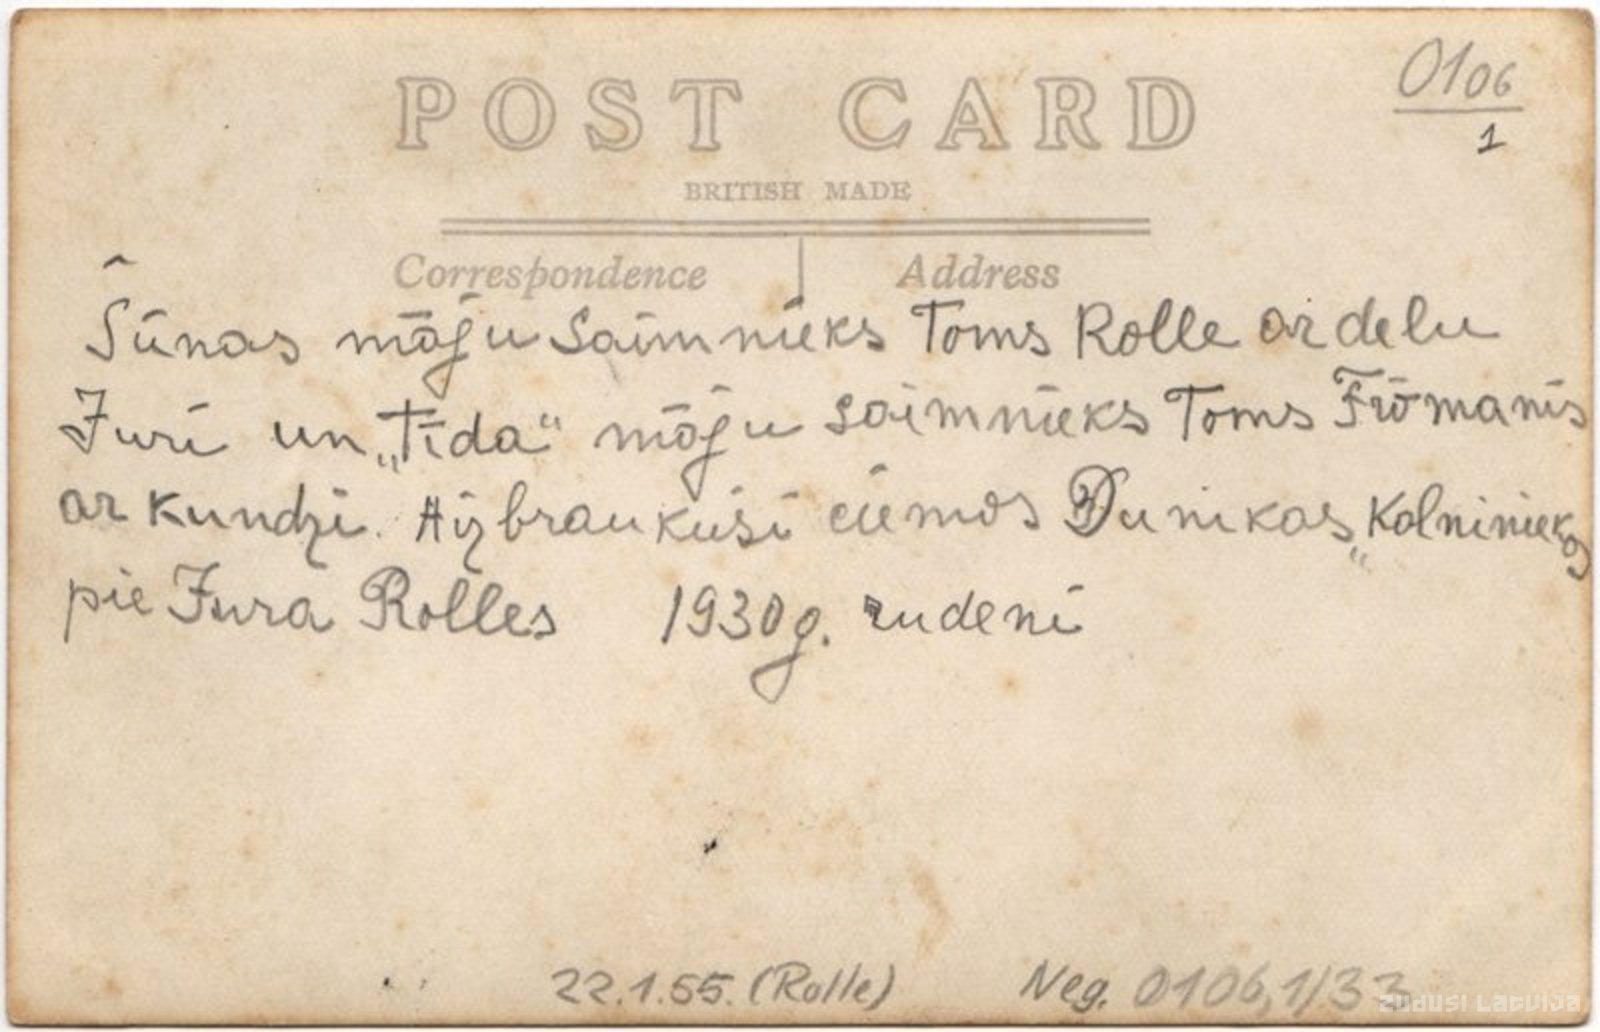 0106
1
POST CARD
BRITISH MADE
Correspondence Address
Šūnas māju saimnieks Toms Rolle ar delu
Juri un „Tīda“ māju saimnieks Toms Frōmanis
ar kundzi. Aizbraukuši ciemos Dunikas „Kalniniekos
pie Jura Rolles 1930 g. rudeni
22.1.55. (Rolle) Neg. 0106,1/33
zudusi Latvija